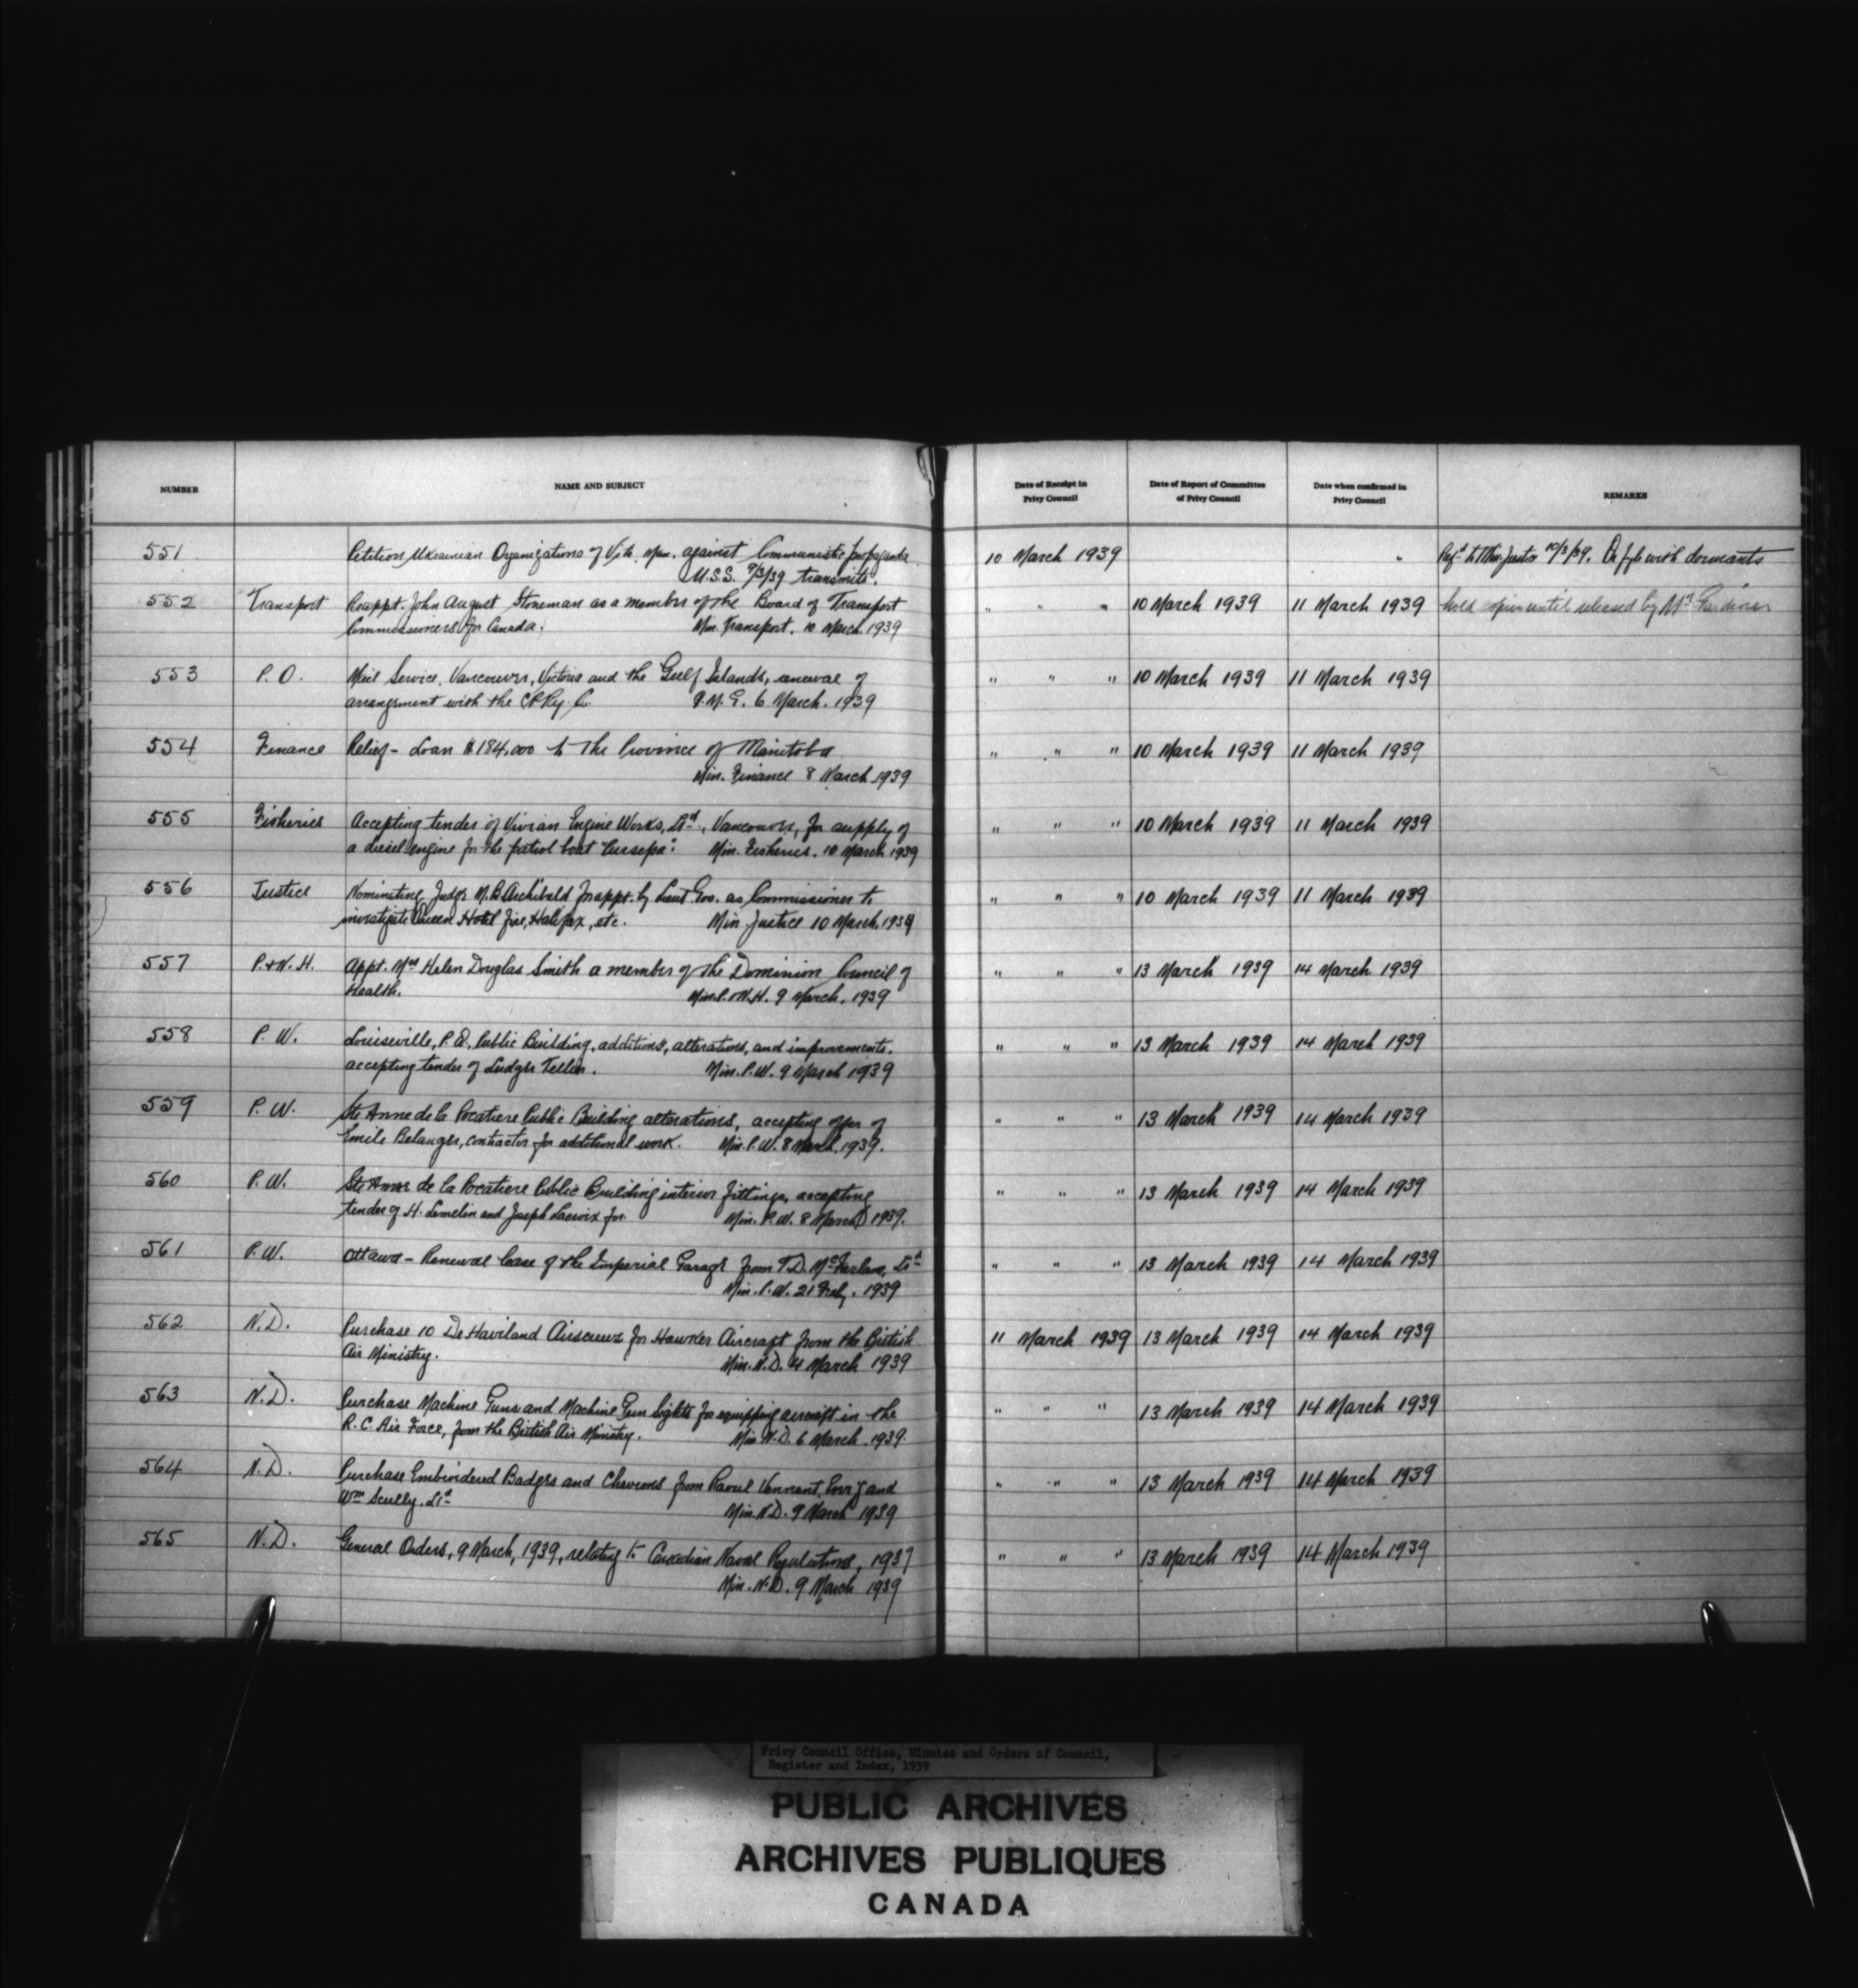 NUMBER NAME AND SUBJECT Date of Receipt in Privy Council Date of Report of Committee of Privy Council Date when confirmed in Privy Council REMARKS
551 Petition Ukrainian Organizations of Vita Man. against Communistic propaganda 10 March 1939 " Ref'd to Min. Justice 10/3/39. On fyle with dormants
U.S.S. 9/3/39 transmits.
552 Transport Reappt. John August Stoneman as a member of the Board of Transport " " " 10 March 1939 11 March 1939 hold copies until released by Mr Gardiner
Commissioners for Canada. Min. Transport. 10 March. 1939
553 P.O. Mail Service, Vancouver, Victoria and the Gulf Islands, renewal of " " " 10 March 1939 11 March 1939
arrangement with the C.P.Ry. Co. P.M.G. 6 March. 1939
554 Finance Relief - Loan $184,000 to the Province of Manitoba " " " 10 March 1939 11 March 1939
Min. Finance 8 March 1939
555 Fisheries Accepting tender of Vivian Engine Works, Ltd., Vancouver, for supply of " " " 10 March 1939 11 March 1939
a diesel engine for the patrol boat Min. Fisheries. 10 March 1939
556 Justice Nominating Judge M.B. Archibald for appt. by Lieut Gov. as Commissioner to " " " 10 March 1939 11 March 1939
investigate Queen Hotel fire, Halifax, etc. Min Justice 10 March. 1939
557 P.&N.H. Appt. Mrs Helen Douglas Smith a member of the Dominion Council of " " " 13 March 1939 14 March 1939
Health. Min. P.&N.H. 9 March. 1939
558 P.W. Louiseville, P.Q. Public Building, additions, alterations, and improvements. " " " 13 March 1939 14 March 1939
accepting tender of Ludger Min. P.W. 9 March 1939
559 P.W. Ste Anne de la Pocatiere Public Building alterations, accepting offer of " " " 13 March 1939 14 March 1939
Emile Belanger, contractor for additional work. Min. P.W. 8 March. 1939.
560 P.W. Ste Anne de la Pocatiere Public Building interior fittings, accepting " " " 13 March 1939 14 March 1939
tender of H. Lemelin and Joseph Lacroix for. Min. P.W. 8 March 1939.
561 P.W. Ottawa - Renewal lease of the Imperial Garage from T.D. McFarlane, Ltd " " " 13 March 1939 14 March 1939
Min. P.W. 21 Feby. 1939
562 N.D. Purchase 10 De Haviland Airscrews for Hawker Aircraft from the British 11 March 1939 13 March 1939 14 March 1939
Air Ministry. Min. N.D. 4 March 1939
563 N.D. Purchase Machine Guns and Machine Gun Sights for equipping aircraft in the " " " 13 March 1939 14 March 1939
R.C. Air Force, from the British Air Ministry. Min. N.D. 6 March. 1939.
564 N.D. Purchase Embroidered Badges and Chevrons from Raoul Vennat, and " " " 13 March 1939 14 March 1939
Wm Scully. Ltd Min. N.D. 9 March 1939
565 N.D. General Orders, 9 March, 1939, relating to Canadian Naval Regulations, 1937 " " " 13 March 1939 14 March 1939
Min. N.D. 9 March 1939
Privy Council Office, Minutes and Orders of Council,
Register and Index, 1939
PUBLIC ARCHIVES
ARCHIVES PUBLIQUES
CANADA